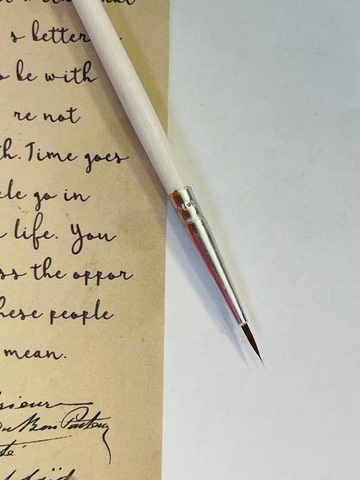 s better
o be with
re not
th. Time goes
ple go in
life. You
ss the oppor
hese people
mean.
sieur
du Bon Pasteur
té